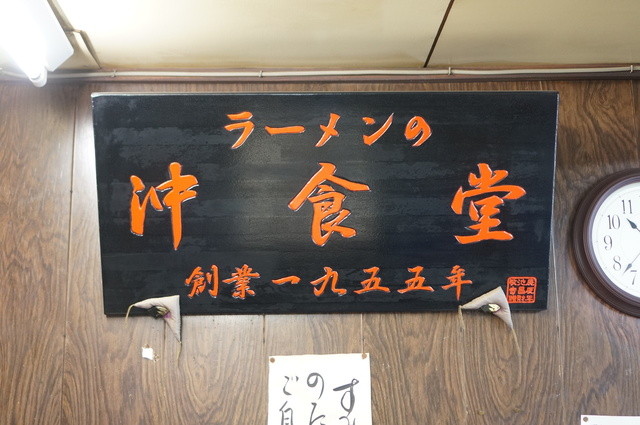 ラーメンの
沖食堂
創業一九五五年
12
11
10
9
8
7